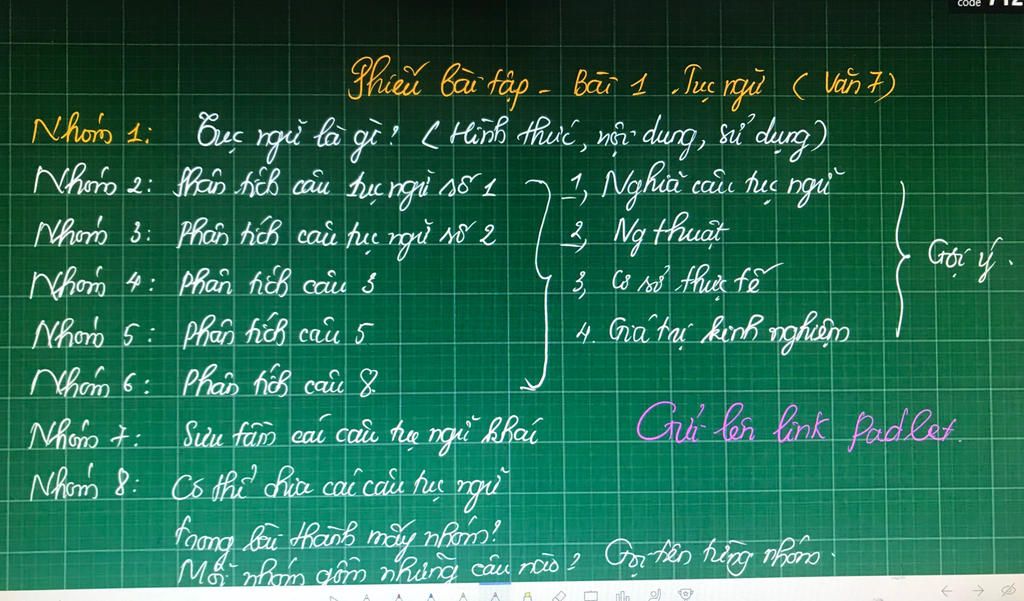 code 712
Phiếu bài tập - Bài 1. Tục ngữ ( Văn 7)
Nhóm 1: Tục ngữ là gì? ( Hình thức, nội dung, sử dụng)
Nhóm 2: Phân tích câu tục ngữ số 1
1, Nghĩa câu tục ngữ
Nhóm 3: Phân tích câu tục ngữ số 2
2, Ng thuật
Gợi ý.
Nhóm 4: Phân tích câu 3
3, Cơ sở thực tế
Nhóm 5: Phân tích câu 5
4. Giá trị kinh nghiệm
Nhóm 6: Phân tích câu 8
Nhóm 7: Sưu tầm các câu tục ngữ khác
Gửi lên link Padlet.
Nhóm 8: Có thể chia các câu tục ngữ
trong bài thành mấy nhóm?
Mỗi nhóm gồm những câu nào? Gọi tên từng nhóm.